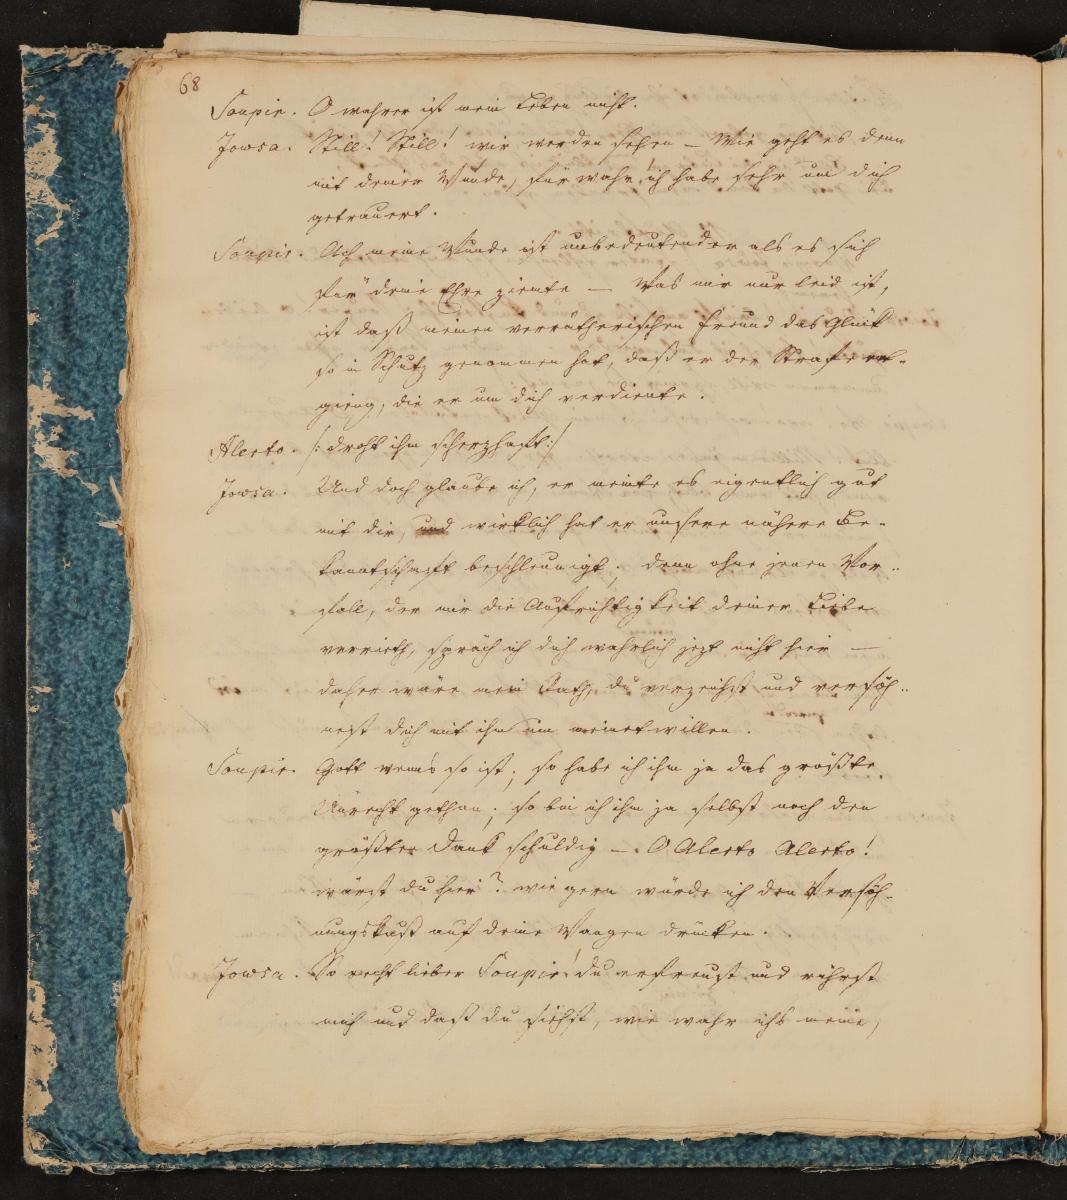 68
Soupir. O wahrer ist mein Leben nicht.
Jowsa. Still! Still! wir werden sehen – Wie geht es denn
mit deiner Wunde, fürwahr, ich habe sehr um dich
getrauert.
Soupir. Ach meine Wunde ist unbedeutender als es sich
für deine Ehre ziemte — Was mir nur leid ist,
ist daß meinen verrätherischen Freund das Glück
so in Schutz genommen hat, daß er der Strafe ent-
gieng, die er um dich verdiente.
Alerto. /: droht ihm scherzhaft :/
Jowsa. Und doch glaube ich, er meinte es eigentlich gut
mit dir, und wirklich hat er unsere nähere Be-
kanntschaft beschleunigt; denn ohne jenen Vor-
fall, der mir die Aufrichtigkeit deiner Liebe
verrieth, spräch ich dich wahrlich jezt nicht hier —
daher wäre mein Rath, du verzeihst und versöh-
nest dich mit ihm um meinetwillen.
Soupir. Gott wenns so ist, so habe ich ihm ja das größte
Unrecht gethan; so bin ich ihm ja selbst noch den
größten Dank schuldig —. O Alerto Alerto!
wärst du hier? wie gern würde ich den Versöh-
nungskuß auf deine Wangen drücken.
Jowsa. So recht lieber Soupir! du erfreust und rührst
mich und daß du siehst, wie wahr ichs meine,